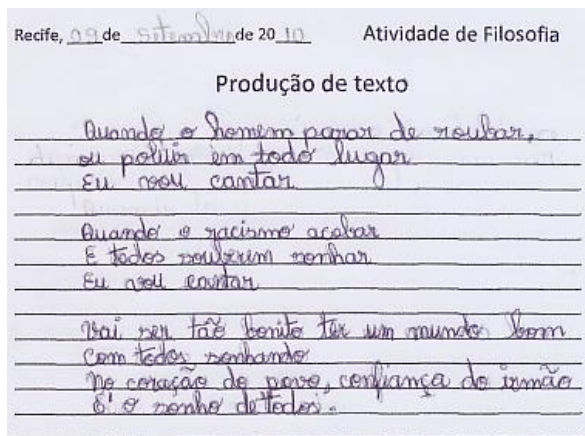 Recife, 09 de setembro de 20 10 Atividade de Filosofia
Produção de texto
Quando o homem parar de roubar,
ou poluir em todo lugar
Eu vou cantar
Quando o racismo acabar
E todos souberem sonhar
Eu vou cantar
Vai ser tão bonito ter um mundo bom
Com todos sonhando
No coração do povo, confiança do irmão
É o sonho de todos.